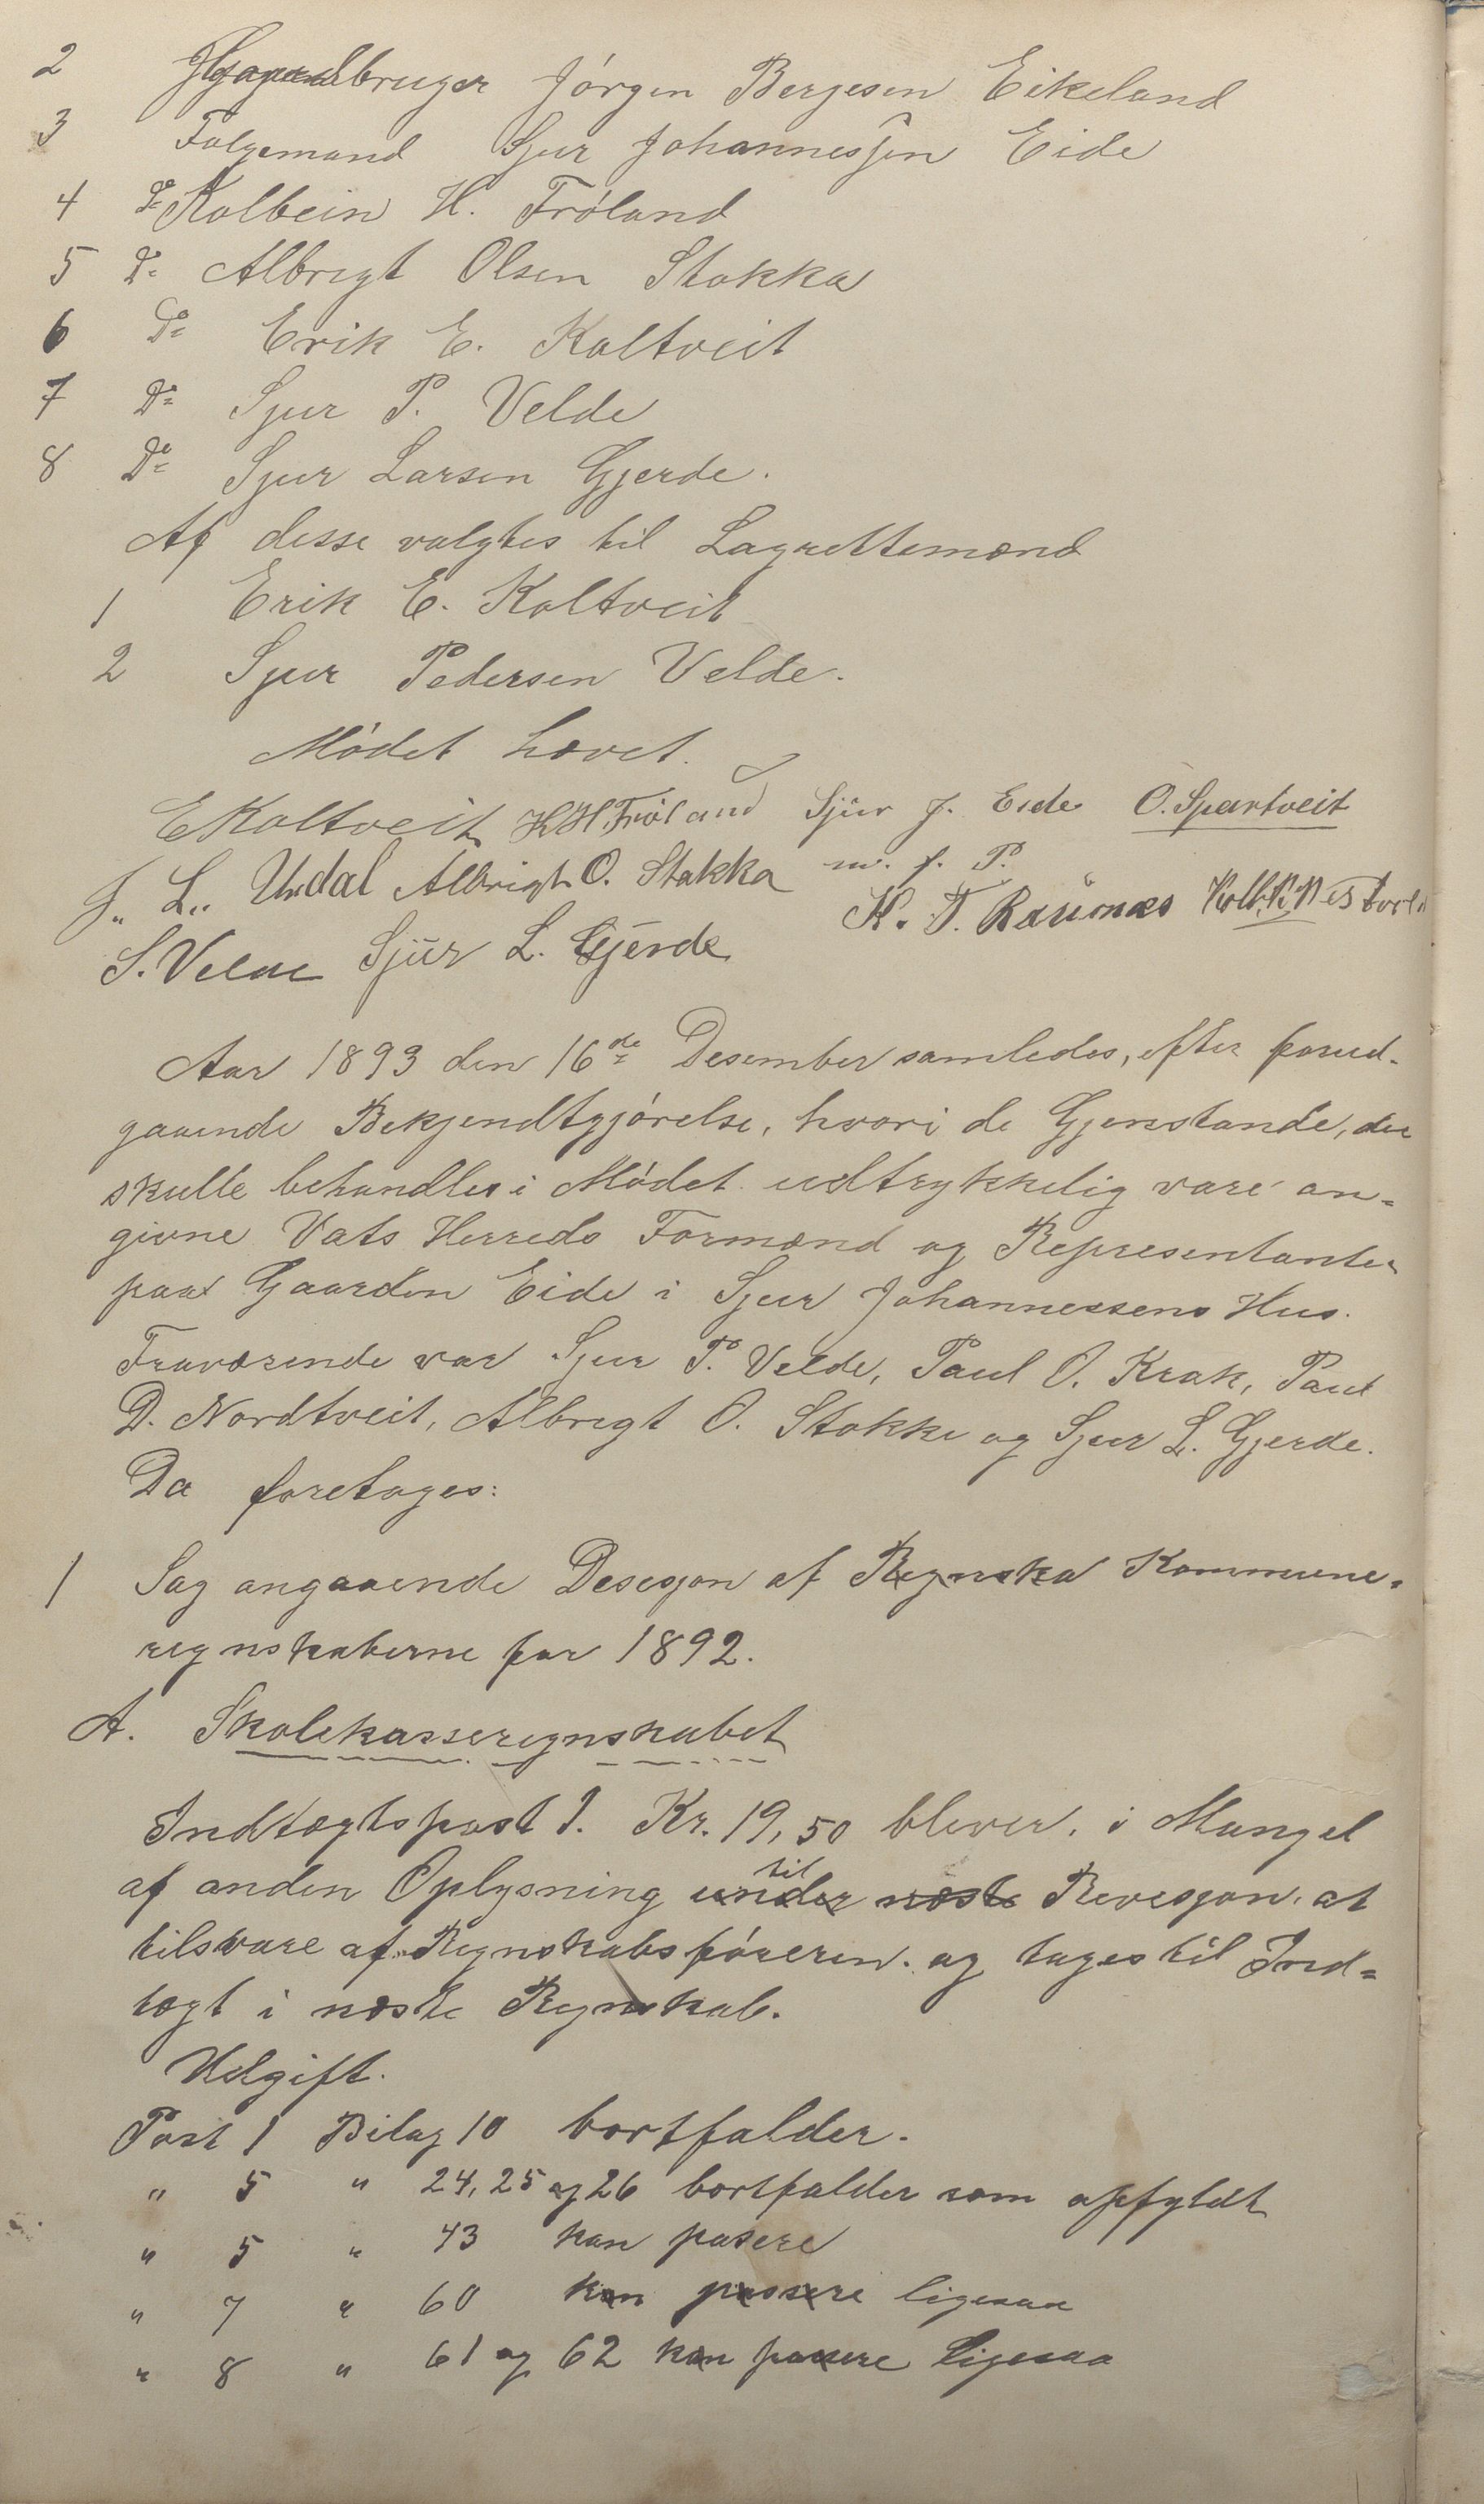 2 bruger Jórgen Bergesen Eikeland
3 Folgemand Sjur Johannessen Eide
4 Do Kolbein H. Fróland
5 Do Albregt Olsen Stakka
6 Do Erik E. Koltveit
7 Do Sjur P. Velde
8 Do Sjur Larsen Gjerde.
Af disse valgtes til Lagrettemænd
1 Erik E. Koltveit
2 Sjur Pedersen Velde.
Módet hævet.
E Koltveit K H. Fröland Sjür J. Eide O. Spartveit
m. f. P.
J. L. Undal Albrigt O. Stakka K. T. Raunnæs
S. Velde Sjür L. Gjerde
Aar 1893 den 16de Desember samledes, efter forud-
gaaende Bekjendtgjórelse, hvori de Gjenstande, der
skulle behandles i Módet udtrykkelig vare an-
givne Vats Herreds Formænd og Representanter
paa Gaarden Eide i Sjur Johannessens Hus.
Fraværende var Sjur P. Velde, Paul O. Krak, Paul
D. Nordtveit, Albregt O. Stakke og Sjur L. Gjerde.
Da foretages:
1 Sag angaaende Desesjon af Regnska Kommune-
regnskaberne for 1892.
A. Skolekasseregnskabet
Indtægtspost 1. Kr. 19,50 bliver, i Mangel
af anden Oplysning under til næste Revesjon, at
tilsvare af Regnskabsfóreren. og tages til Ind-
tægt i næste Regnskab.
Udgift.
Post 1 Bilag 10 bortfalder.
" 5 " 24, 25 og 26 bortfalder som opfyldt
" 5 " 43 kan pasere
" 7 " 60 kan passere ligesaa
" 8 " 61 og 62 kan passere ligesaa